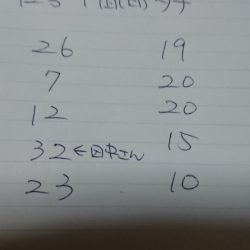 26 19
7 20
12 20
32←田中さん 15
23 10